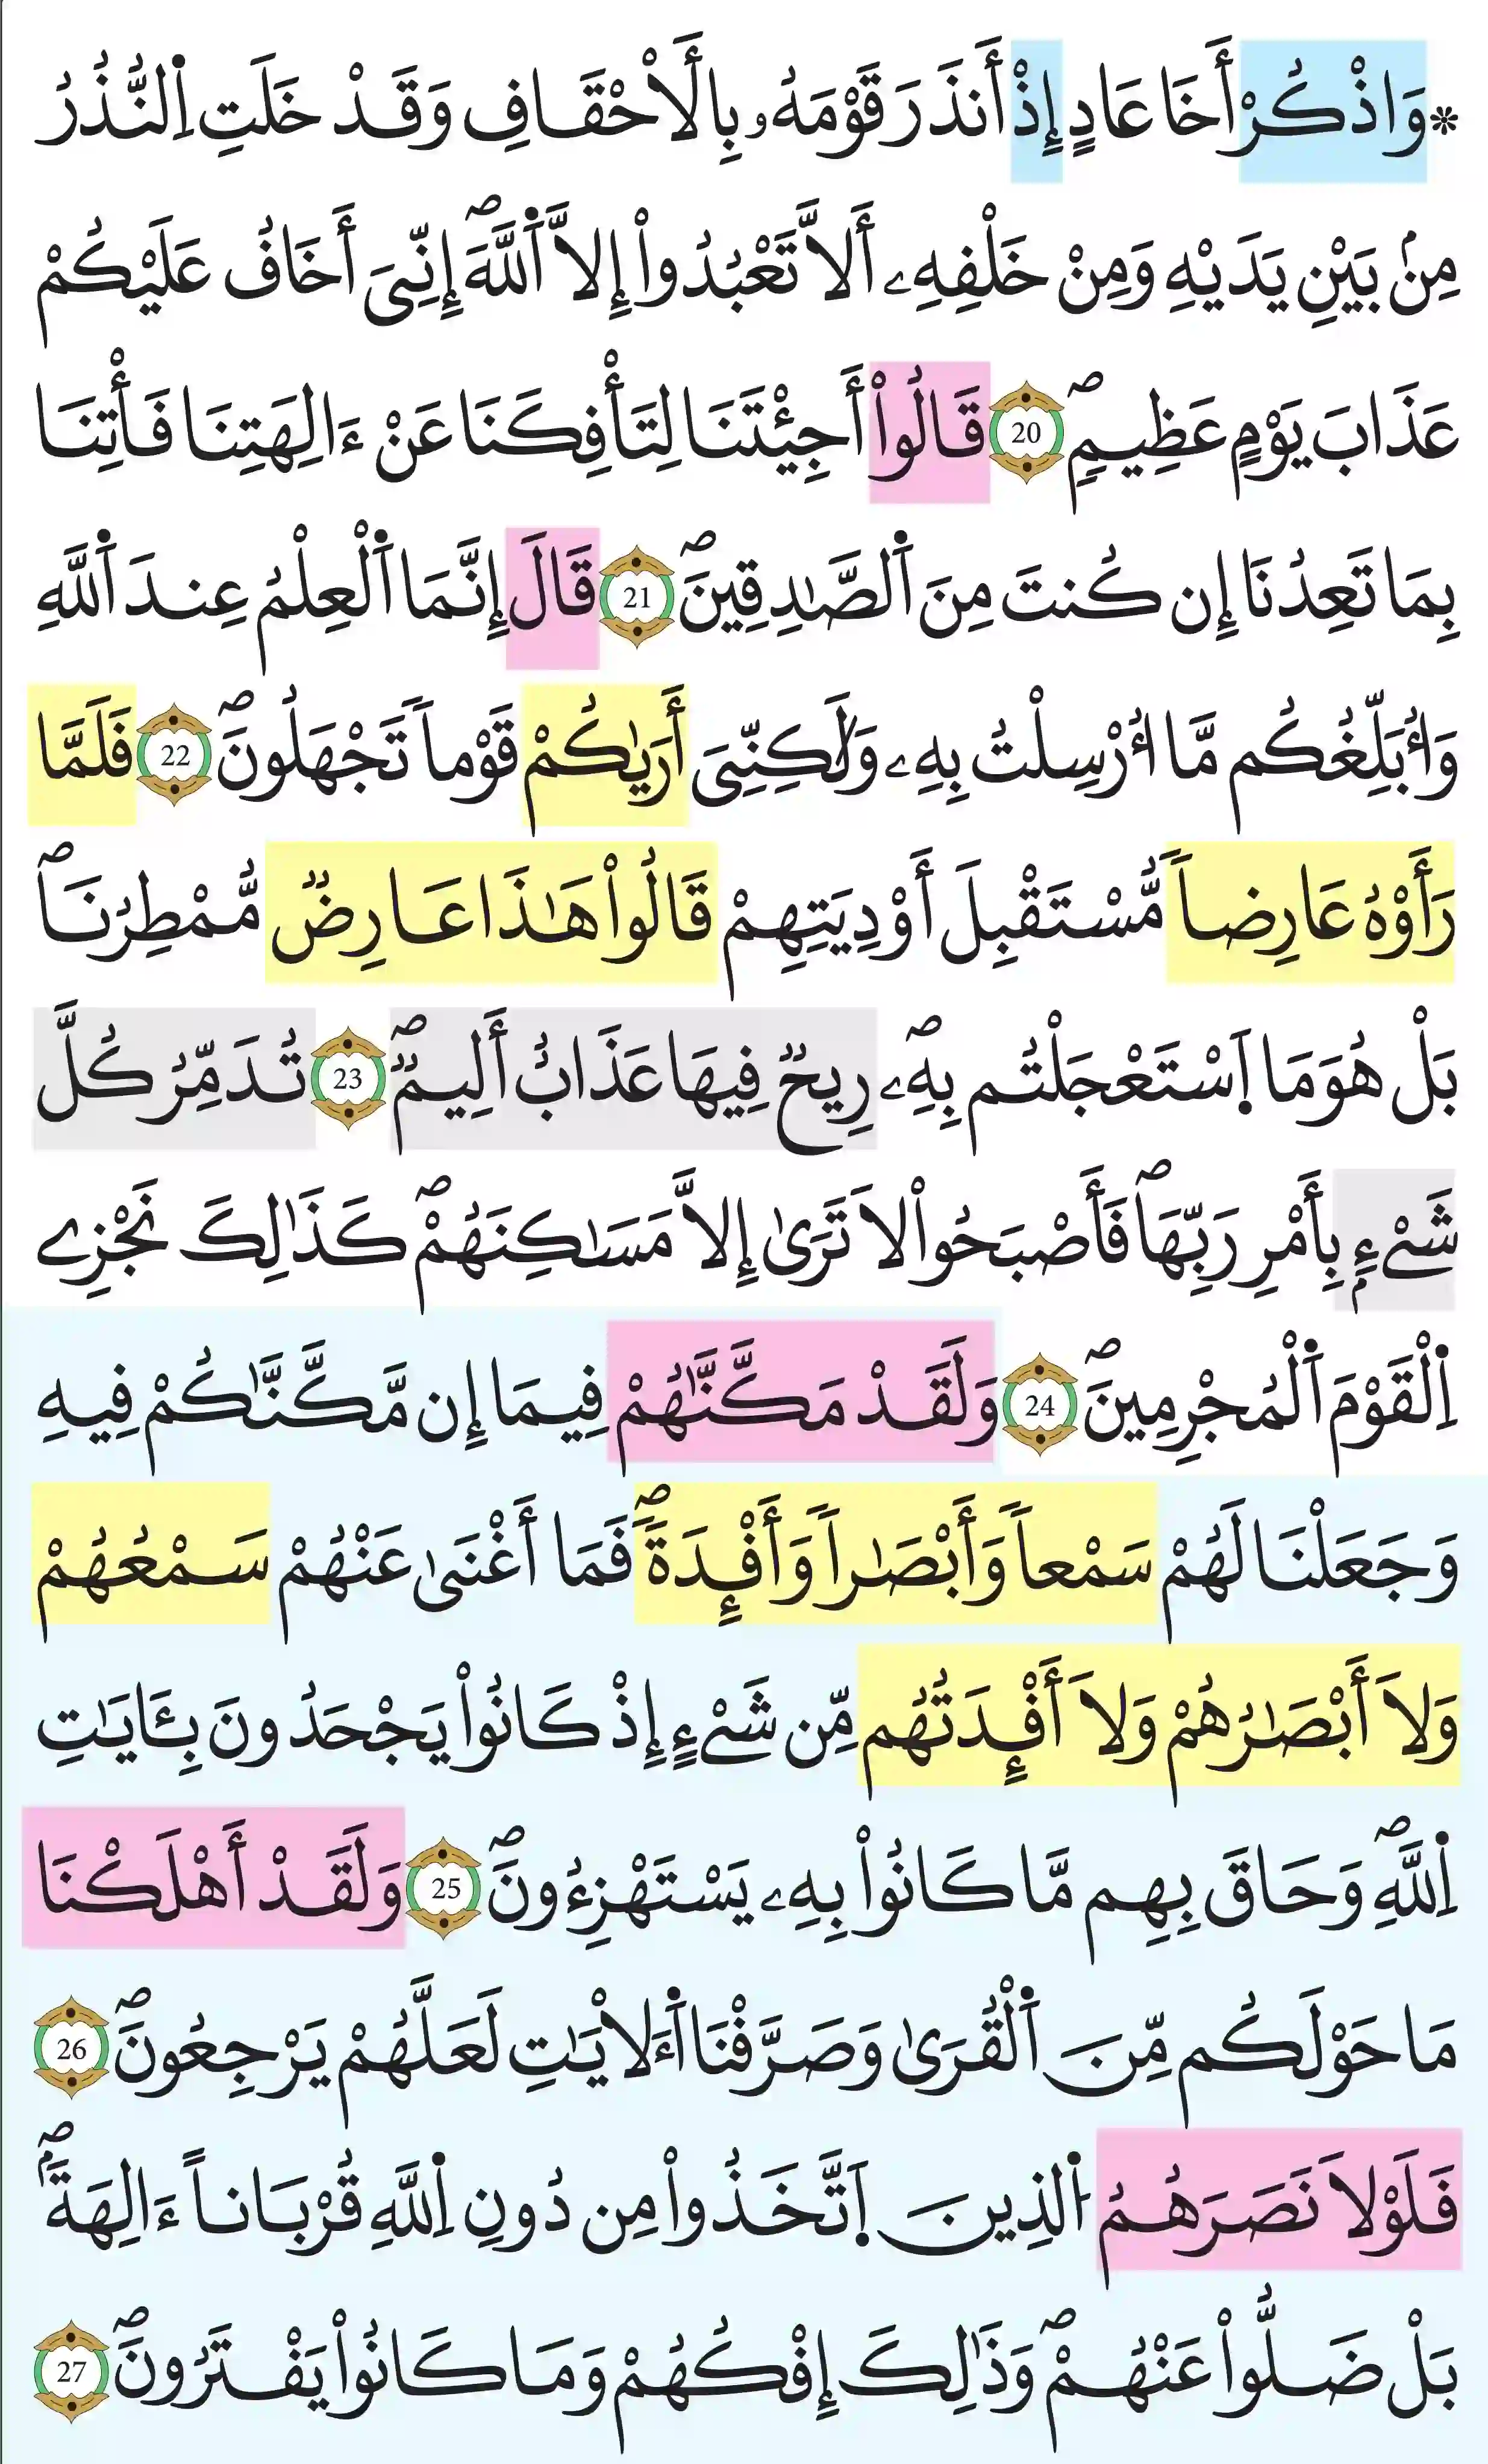 * وَاذْكُرْ أَخَا عَادٍ إِذْ أَنذَرَ قَوْمَهُۥ بِالَاحْقَافِ وَقَدْ خَلَتِ اِ۬لنُّذُرُ
مِنۢ بَيْنِ يَدَيْهِ وَمِنْ خَلْفِهِۦ أَلَّا تَعْبُدُوٓاْ إِلَّا اَ۬للَّهَۖ إِنِّيَ أَخَافُ عَلَيْكُمْ
عَذَابَ يَوْمٍ عَظِيمٖۖ 20 قَالُوٓاْ أَجِئْتَنَا لِتَأْفِكَنَا عَنْ ءَالِهَتِنَا فَأْتِنَا
بِمَا تَعِدُنَا إِن كُنتَ مِنَ اَ۬لصَّٰدِقِينَۖ 21 قَالَ إِنَّمَا اَ۬لْعِلْمُ عِندَ اَ۬للَّهِ
وَأُبَلِّغُكُم مَّا أُرْسِلْتُ بِهِۦ وَلَٰكِنِّيَ أَرَيٰكُمْ قَوْماٗ تَجْهَلُونَۖ 22 فَلَمَّا
رَأَوْهُ عَارِضاٗ مُّسْتَقْبِلَ أَوْدِيَتِهِمْ قَالُواْ هَٰذَا عَارِضٞ مُّمْطِرُنَاۖ
بَلْ هُوَ مَا اَ۪سْتَعْجَلْتُم بِهِۦۖ رِيحٞ فِيهَا عَذَابٌ أَلِيمٞۖ 23 تُدَمِّرُ كُلَّ
شَيْءِۢ بِأَمْرِ رَبِّهَاۖ فَأَصْبَحُواْ لَا تَرَىٰ إِلَّا مَسَٰكِنَهُمْۖ كَذَٰلِكَ نَجْزِے
اِ۬لْقَوْمَ اَ۬لْمُجْرِمِينَۖ 24 وَلَقَدْ مَكَّنَّٰهُمْ فِيمَا إِن مَّكَّنَّٰكُمْ فِيهِ
وَجَعَلْنَا لَهُمْ سَمْعاٗ وَأَبْصَٰراٗ وَأَفْـِٕدَةٗۖ فَمَا أَغْنَىٰ عَنْهُمْ سَمْعُهُمْ
وَلَا أَبْصَٰرُهُمْ وَلَا أَفْـِٕدَتُهُم مِّن شَيْءٍ إِذْ كَانُواْ يَجْحَدُونَ بِـَٔايَٰتِ
اِ۬للَّهِۖ وَحَاقَ بِهِم مَّا كَانُواْ بِهِۦ يَسْتَهْزِءُونَۖ 25 وَلَقَدْ أَهْلَكْنَا
مَا حَوْلَكُم مِّنَ اَ۬لْقُرَىٰ وَصَرَّفْنَا اَ۬لَايَٰتِ لَعَلَّهُمْ يَرْجِعُونَۖ 26
فَلَوْلَا نَصَرَهُمُ اُ۬لذِينَ اَ۪تَّخَذُواْ مِن دُونِ اِ۬للَّهِ قُرْبَاناً ءَالِهَةَۢۖ
بَلْ ضَلُّواْ عَنْهُمْۖ وَذَٰلِكَ إِفْكُهُمْ وَمَا كَانُواْ يَفْتَرُونَۖ 27